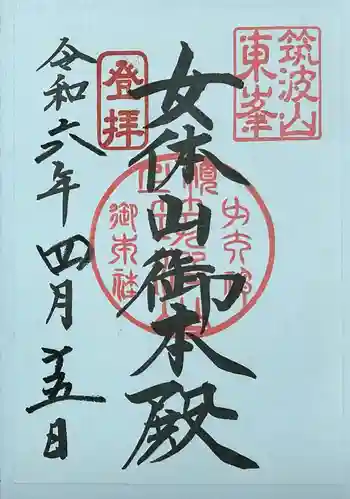 筑波山
東峯
登拝
女体山御本殿
令和六年四月十五日
御本社